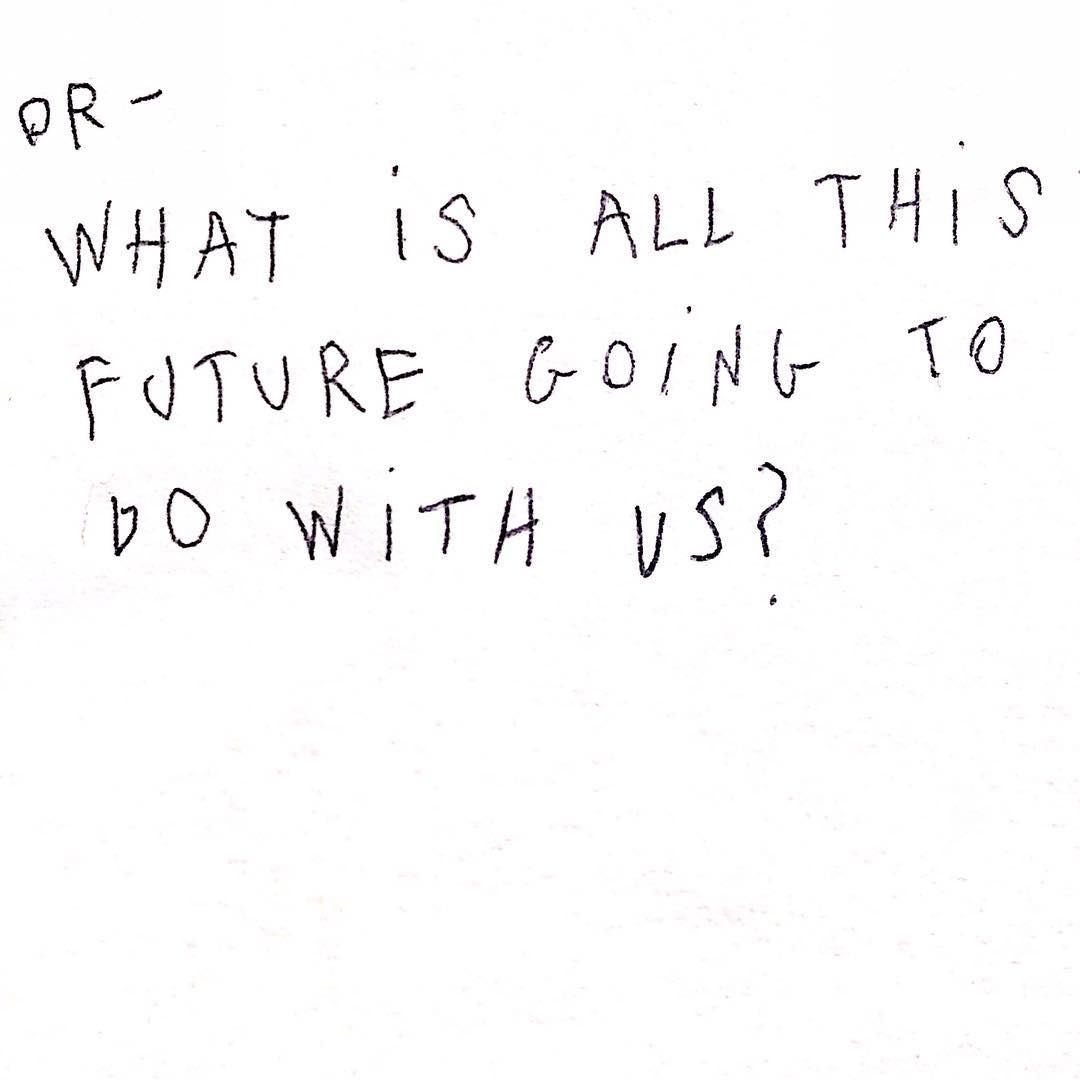 OR-
WHAT iS ALL THiS
FUTURE GOiNG TO
DO WiTH US?